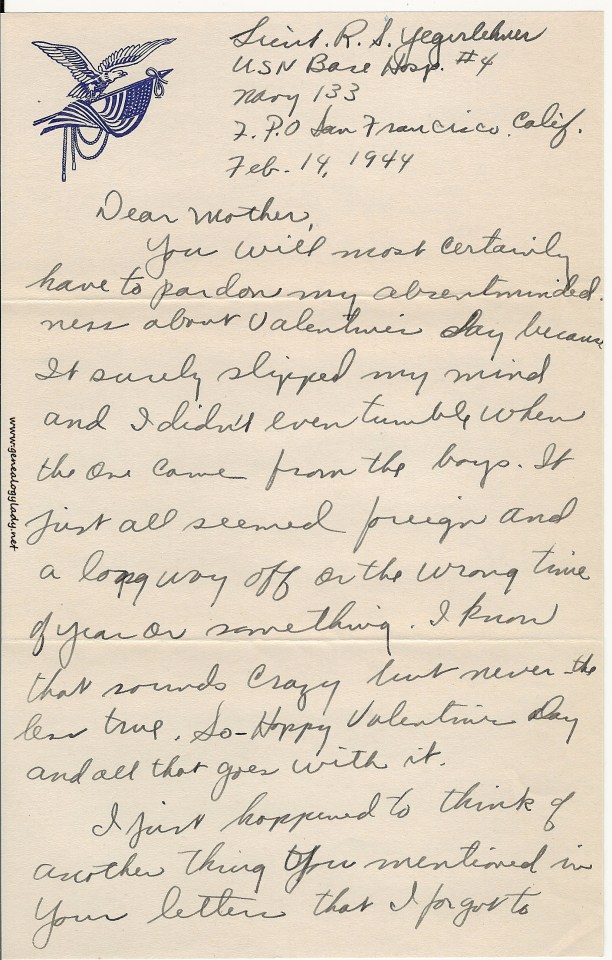 Lieut. R. S. Yegerlehner
USN Base Hosp. #4
Navy 133
F.P.O San Francisco. Calif.
Feb. 14, 1944
Dear Mother,
You will most certainly
have to pardon my absentminded-
ness about Valentines Day because
It surely slipped my mind
and I didn't even tumble when
the one came from the boys. It
just all seemed foreign and
a long way off or the wrong time
of year or something. I know
that sounds crazy but never-the
less true. So-Happy Valentines Day
and all that goes with it.
I just happened to think of
another thing you mentioned in
your letters that I forgot to
www.genealogylady.net